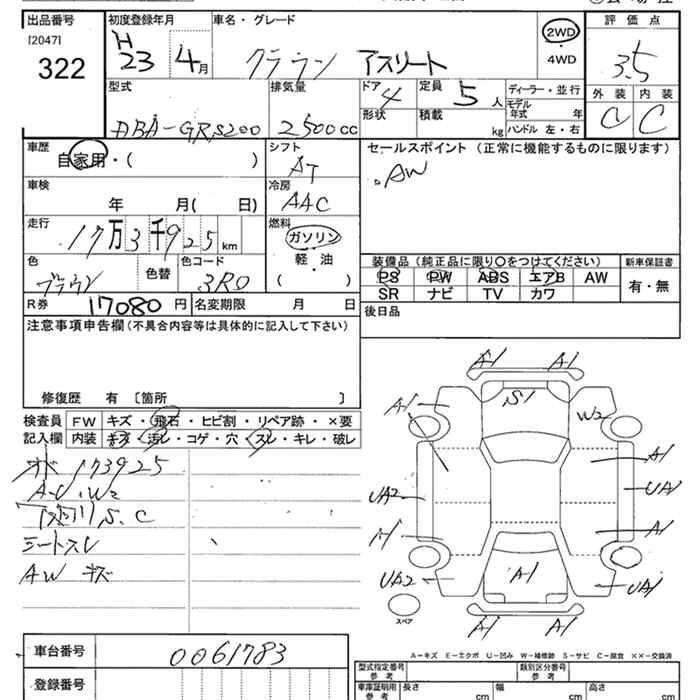 出品番号 初度登録年月 車名・グレード 評価点
[2047] H 2WD
322 23 4月 クラウン アスリート 4WD 3.5
型式 排気量 ドア 定員 ディーラー・並行 外装 内装
4 5人 モデル年式 年
DBA-GRS200 2500cc 形状 積載 kg ハンドル 左・右 C C
車歴 シフト セールスポイント (正常に機能するものに限ります)
自家用・( ) AT ・AW
車検 冷房
年 月( 日) AAC
走行 燃料
17万3千925km ガソリン 装備品(純正品に限り○をつけてください) 新車保証書
色 色替 色コード 軽・油 PS PW ABS エアB AW 有・無
ブラウン 3R0 ( ) SR ナビ TV カワ
R券 17080円 名変期限 月 日 後日品
注意事項申告欄(不具合内容等は具体的に記入して下さい)
修復歴 有 〔箇所 〕
検査員 FW キズ・飛石・ヒビ割・リペア跡・×要
記入欄 内装 キズ・汚レ・コゲ・穴・スレ・キレ・破レ
173925
A-U.W2
S.C
シートスレ
AW キズ
A1 A1
S1
A1 W2
A1
UA2 UA1
A1 A1
UA2 A1 UA1
スペア
A1 A1
A-キズ E-エクボ U-凹み W-補修跡 S-サビ C-腐食 ××-交換済
車台番号 0061783
登録番号
型式指定番号 参考 類別区分番号 参考
車庫証明用 参考 長さ cm 幅 cm 高さ cm